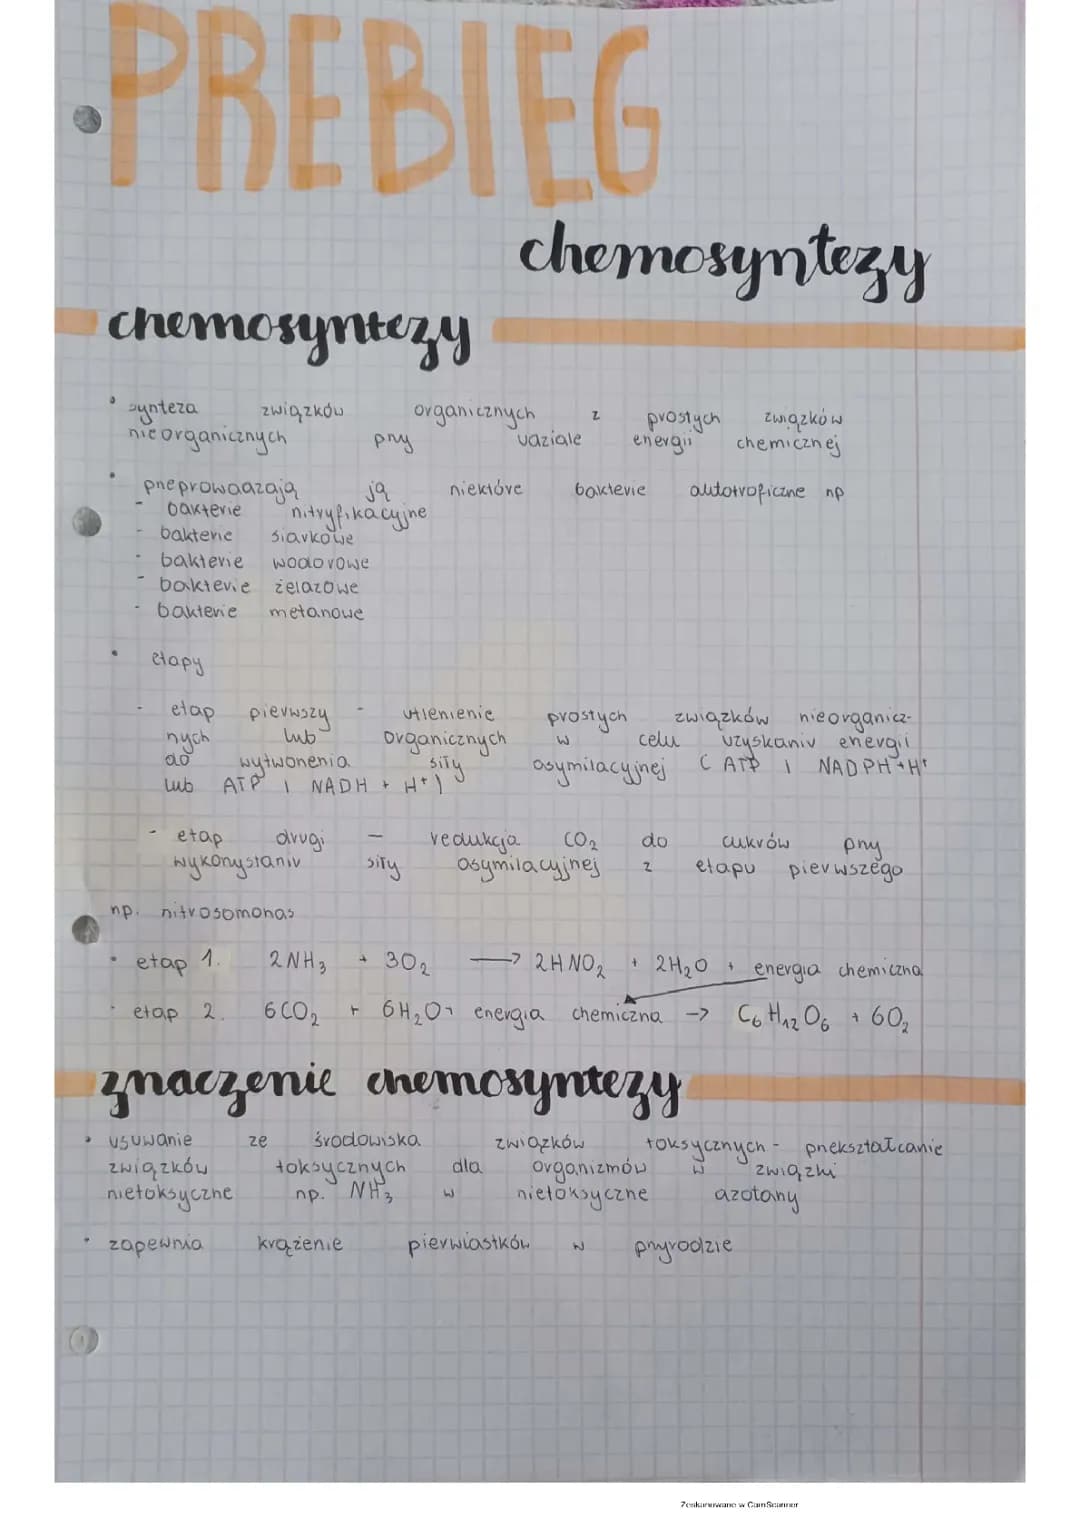 PREBIEG
chemosyntezy
chemosyntezy
• synteza związków organicznych z prostych związków
nieorganicznych przy udziale energii chemicznej
• przeprowadzają ją niektóre bakterie autotroficzne np
- bakterie nitryfikacyjne
- bakterie siarkowe
- bakterie wodorowe
- bakterie żelazowe
- bakterie metanowe
• etapy
- etap pierwszy - utlenienie prostych związków nieorganicz-
nych lub organicznych w celu uzyskaniu energii
do wytworzenia siły asymilacyjnej (ATP i NADPH+H⁺
lub ATP i NADH + H⁺)
- etap drugi - redukcja CO₂ do cukrów przy
wykorzystaniu siły asymilacyjnej z etapu pierwszego
np. nitrosomonas
• etap 1. 2NH₃ + 3O₂ ⟶ 2HNO₂ + 2H₂O + energia chemiczna
• etap 2. 6CO₂ + 6H₂O + energia chemiczna -> C₆H₁₂O₆ + 6O₂
znaczenie chemosyntezy
• usuwanie ze środowiska związków toksycznych - przekształcanie
związków toksycznych dla organizmów w związki
nietoksyczne np. NH₃ w nietoksyczne azotany
• zapewnia krążenie pierwiastków w przyrodzie
Zeskanowane w CamScanner